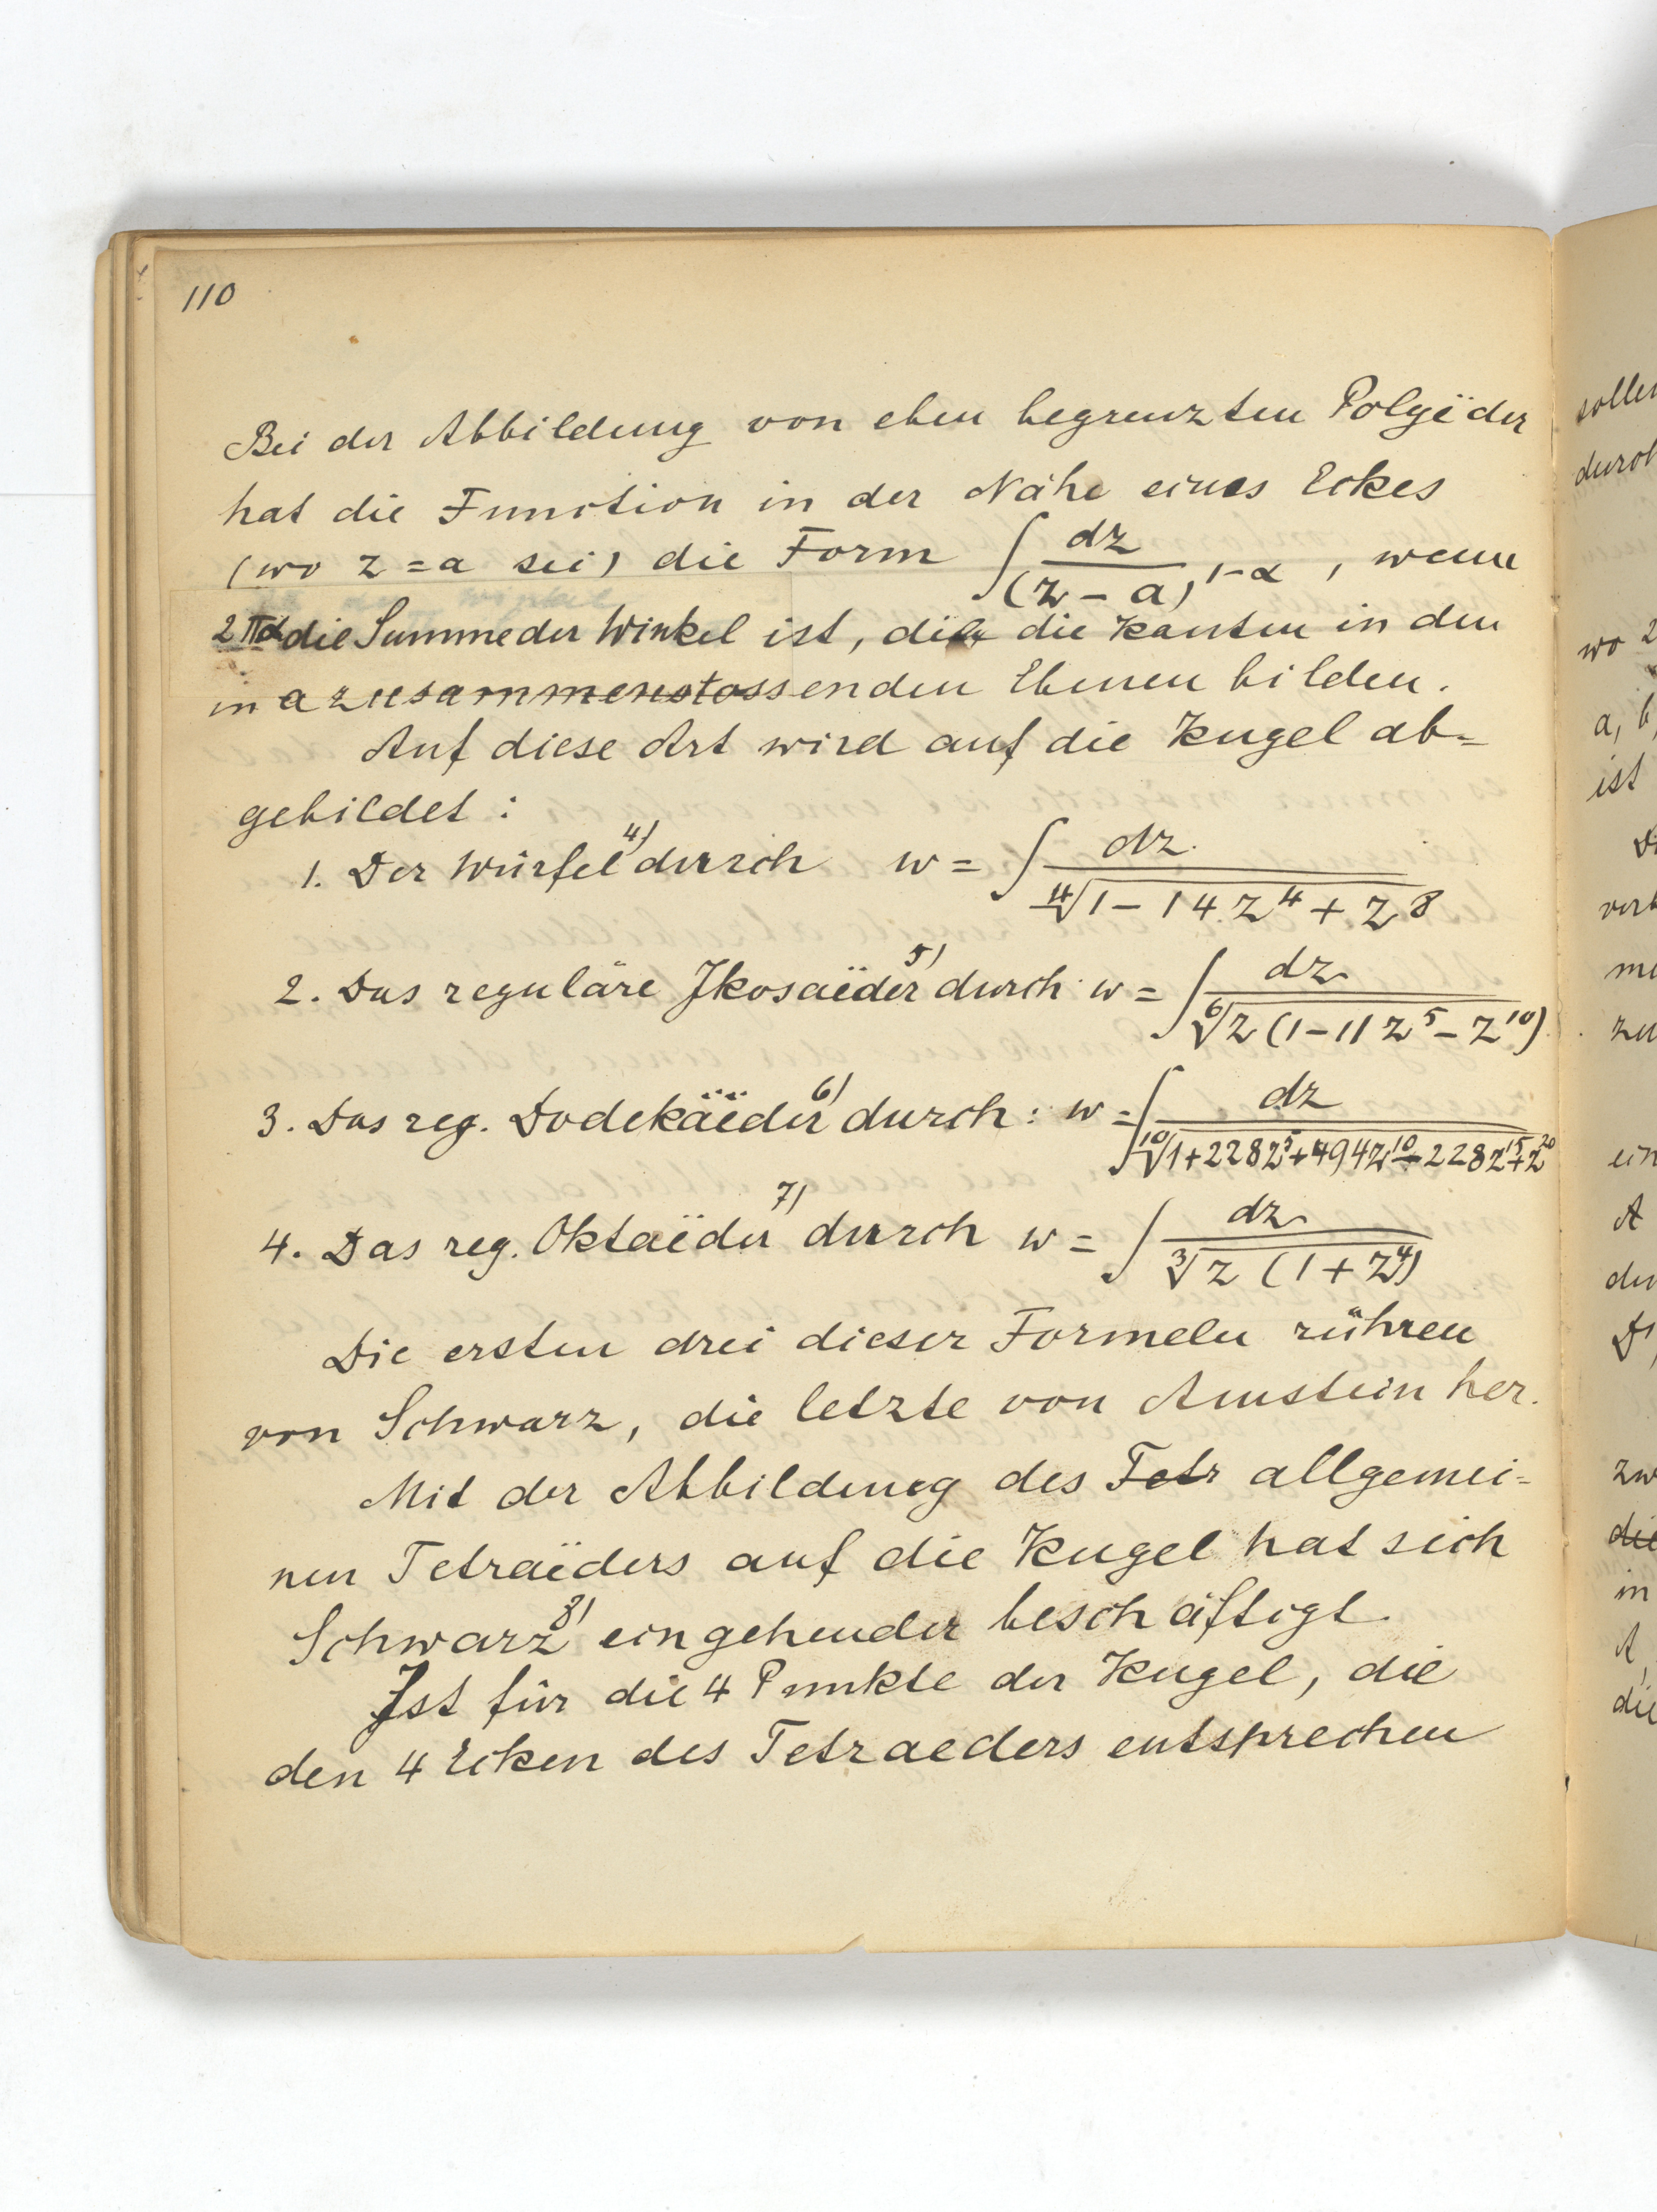 110
Bei der Abbildung von eben begrenzten Polyëder
hat die Function in der Nähe eines Eckes
(wo z = a sei) die Form ∫ dz/(z – a)^{1-α}, wenn
2πα die Summe der Winkel ist, die die Kanten in den
in a zusammenstossenden Ebenen bilden.
Auf diese Art wird auf die Kugel ab=
gebildet:
1. Der Würfel⁴⁾ durch w = ∫ dz / ∜(1 – 14 z⁴ + z⁸)
2. Das reguläre Jkosaëder⁵⁾ durch w = ∫ dz / ⁶√(z (1 – 11 z⁵ – z¹⁰))
3. Das reg. Dodekäëder⁶⁾ durch: w = ∫ dz / ¹⁰√(1+228z⁵+494z¹⁰–228z¹⁵+z²⁰)
4. Das reg. Oktaëder⁷⁾ durch w = ∫ dz / ∛(z (1 + z⁴))
Die ersten drei dieser Formeln rühren
von Schwarz, die letzte von Amstein her.
Mit der Abbildung des Tetr allgemei=
nen Tetraëders auf die Kugel hat sich
Schwarz⁸⁾ eingehender beschäftigt.
Jst für die 4 Punkte der Kugel, die
den 4 Ecken des Tetraeders entsprechen
sollen
durch
wo 2
a, b,
ist
zu
ein
A
die
in
A,
die